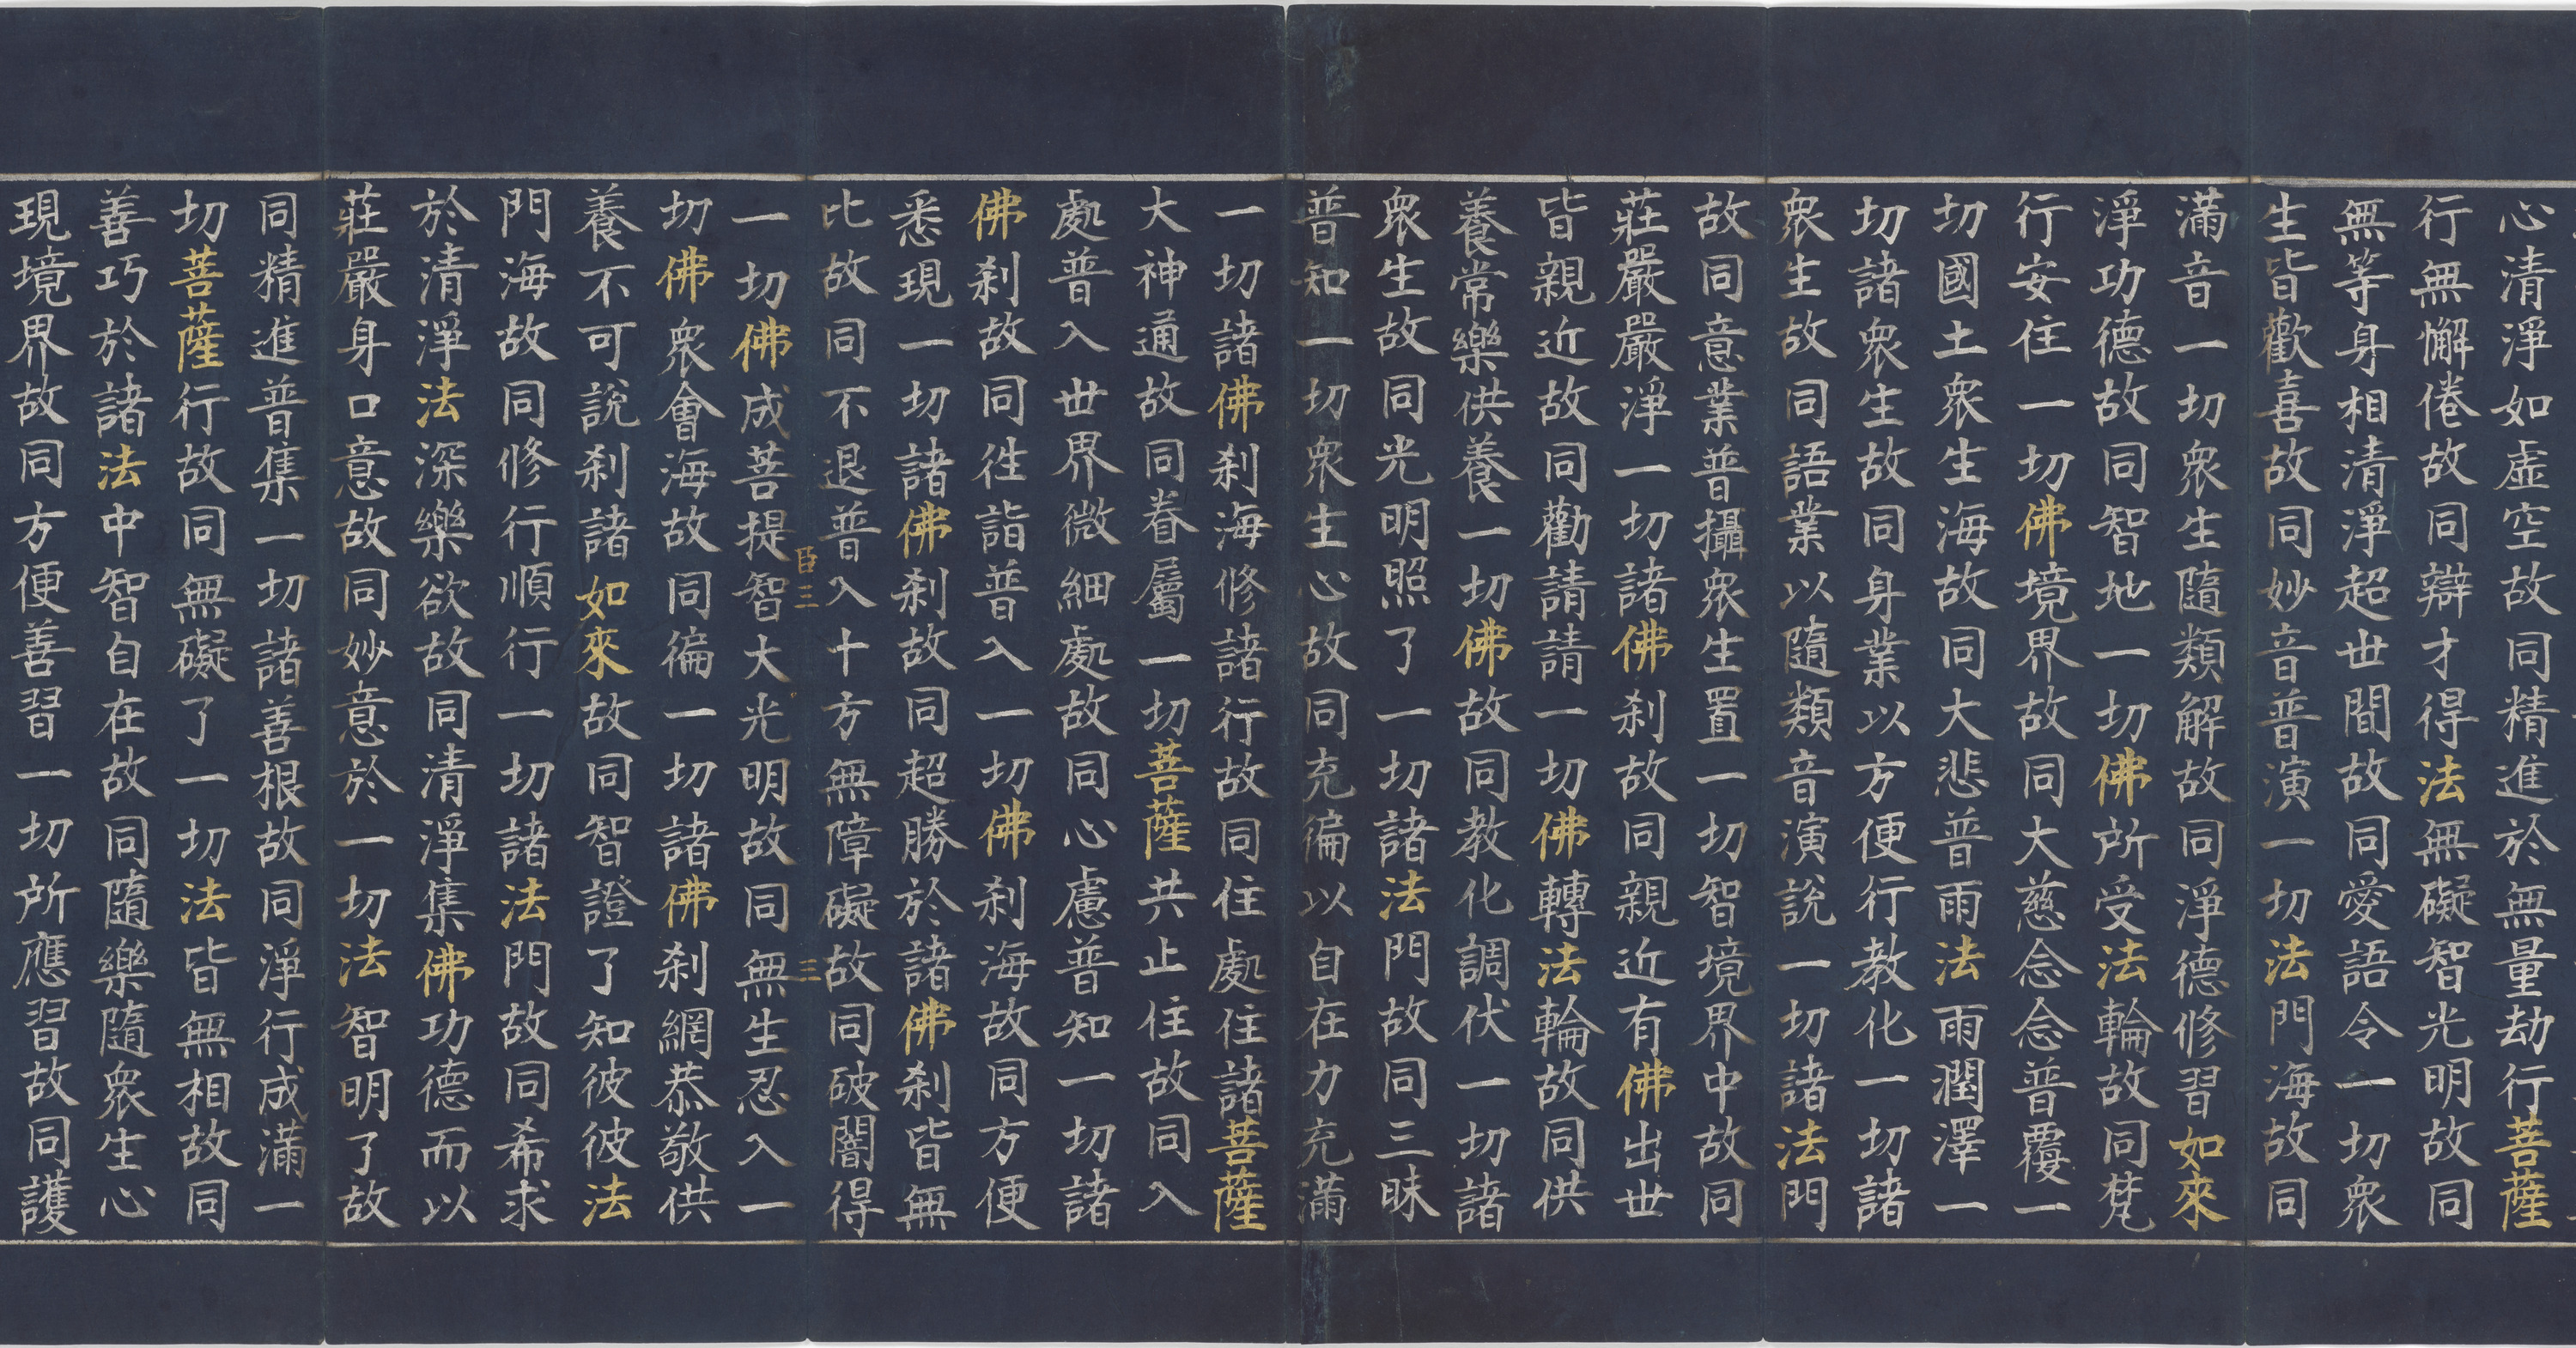 心清淨如虛空故同精進於無量劫行菩薩
行無懈倦故同辯才得法無礙智光明故同
無等身相清淨超世間故同愛語令一切衆
生皆歡喜故同妙音普演一切法門海故同
滿音一切衆生隨類解故同淨德修習如來
淨功德故同智地一切佛所受法輪故同梵
行安住一切佛境界故同大慈念念普覆一
切國土衆生海故同大悲普雨法雨潤澤一
切諸衆生故同身業以方便行教化一切諸
衆生故同語業以隨類音演說一切諸法門
故同意業普攝衆生置一切智境界中故同
莊嚴嚴淨一切諸佛刹故同親近有佛出世
皆親近故同勸請請一切佛轉法輪故同供
養常樂供養一切佛故同教化調伏一切諸
衆生故同光明照了一切諸法門故同三昧
普知一切衆生心故同充徧以自在力充滿
一切諸佛刹海修諸行故同住處住諸菩薩
大神通故同眷屬一切菩薩共止住故同入
處普入世界微細處故同心慮普知一切諸
佛刹故同徃詣普入一切佛刹海故同方便
悉現一切諸佛刹故同超勝於諸佛刹皆無
比故同不退普入十方無障礙故同破闇得
臣三
三
一切佛成菩提智大光明故同無生忍入一
切佛衆會海故同徧一切諸佛刹網恭敬供
養不可說刹諸如來故同智證了知彼彼法
門海故同修行順行一切諸法門故同希求
於清淨法深樂欲故同清淨集佛功德而以
莊嚴身口意故同妙意於一切法智明了故
同精進普集一切諸善根故同淨行成滿一
切菩薩行故同無礙了一切法皆無相故同
善巧於諸法中智自在故同隨樂隨衆生心
現境界故同方便善習一切所應習故同護